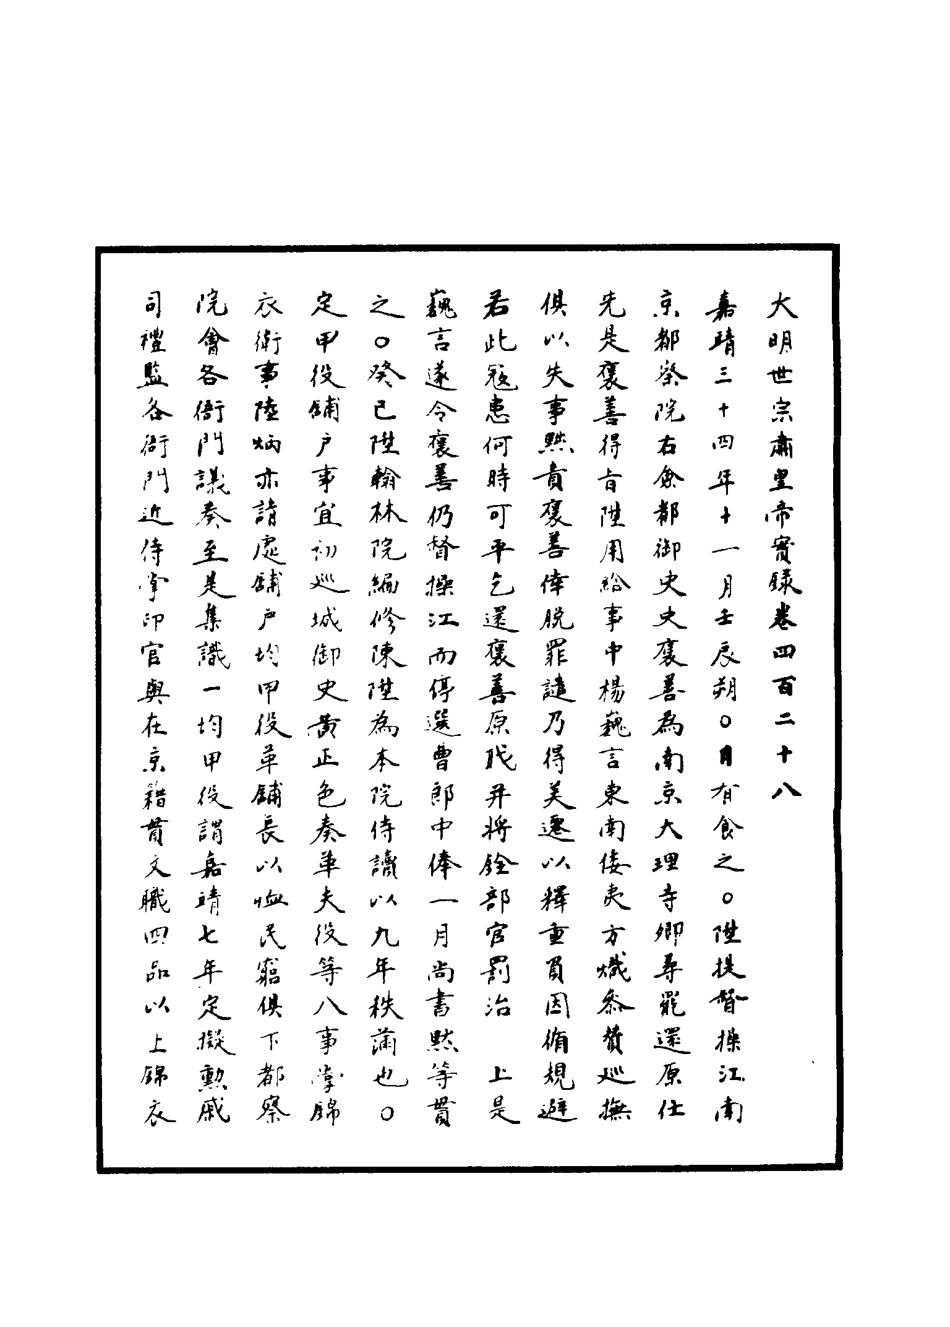 大明世宗肅皇帝實錄卷四百二十八
嘉靖三十四年十一月壬辰朔○日有食之○陞提督操江南
京都察院右僉都御史史褒善為南京大理寺卿尋罷還原仕
先是褒善得旨陞用給事中楊巍言東南倭夷方熾叅贊巡撫
俱以失事黜責褒善倖脫罪譴乃得美遷以釋重負因循規避
若此寇患何時可平乞還褒善原戝并將銓部官罰治　上是
巍言遂令褒善仍督操江而停選曹郎中俸一月尚書默等貰
之○癸巳陞翰林院編修陳陞為本院侍讀以九年秩滿也○
定甲役鋪户事宜初巡城御史黃正色奏革夫役等八事掌錦
衣衛事陸炳亦請處鋪户均甲役革鋪長以恤民窮俱下都察
院會各衙門議奏至是集議一均甲役謂嘉靖七年定擬勳戚
司禮監各衙門近侍掌印官與在京籍貫文職四品以上錦衣